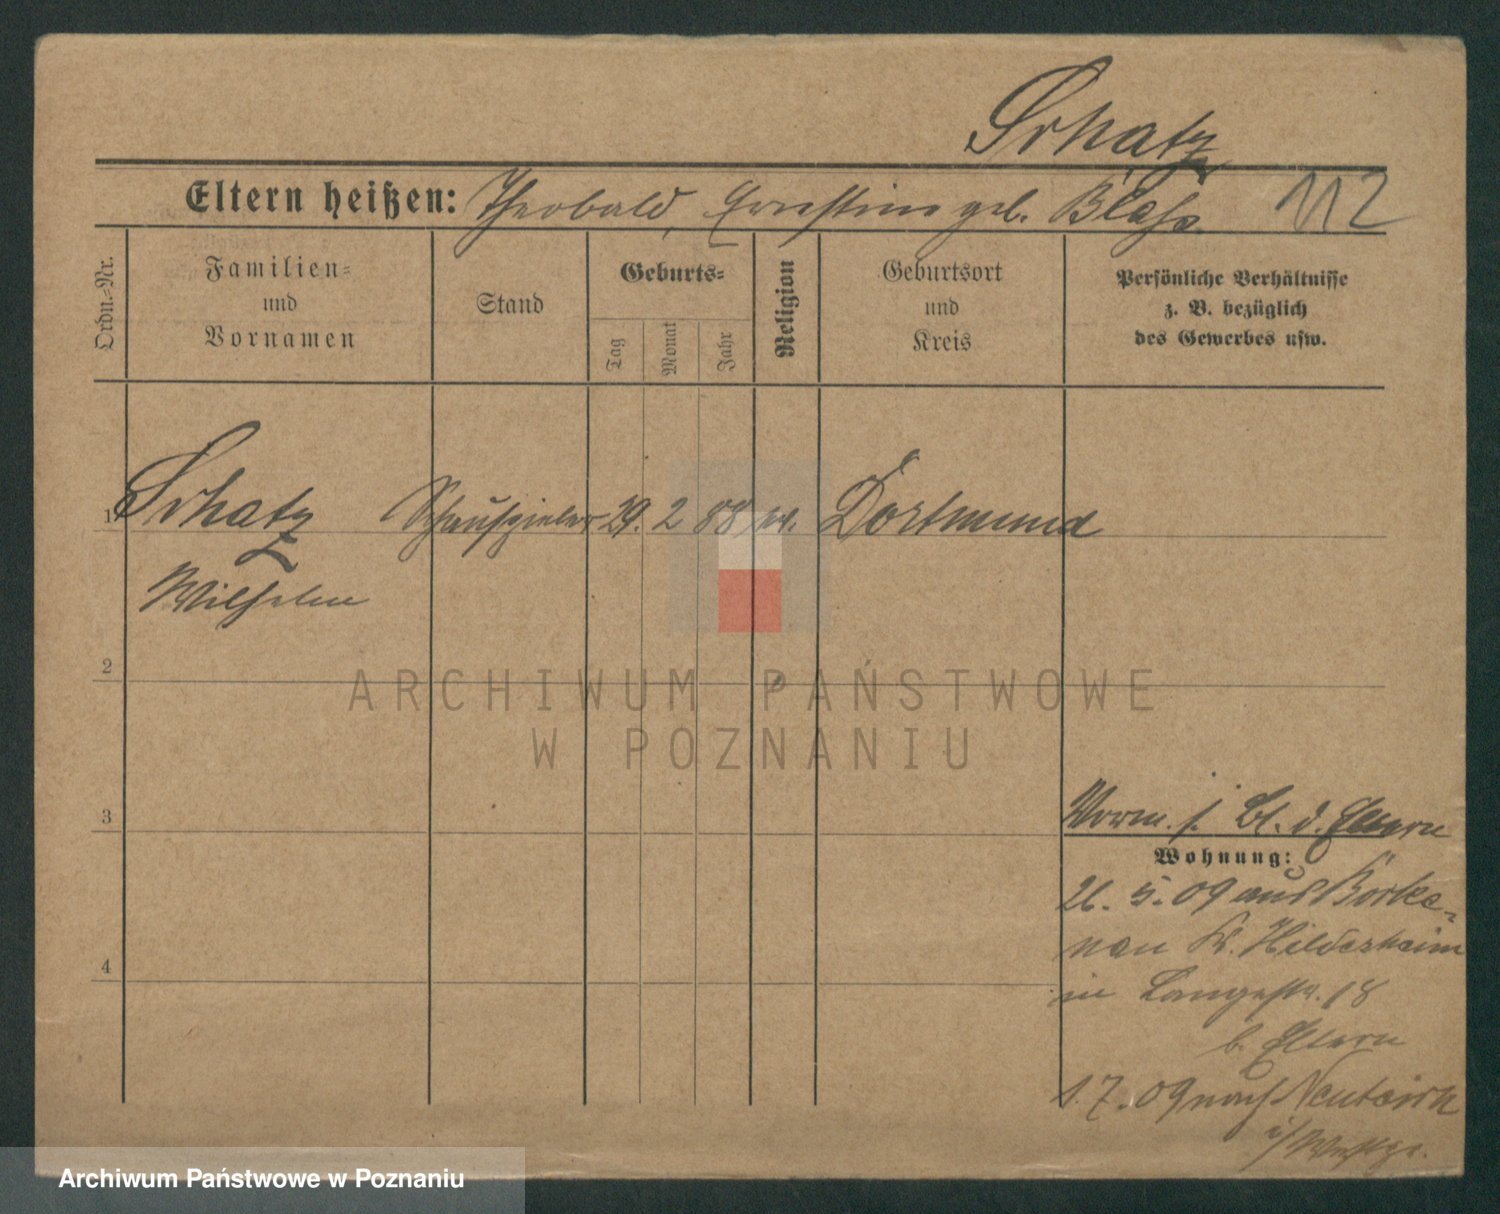 Schatz
Eltern heißen: Theobald, Ernestine geb. Blass. 112
Ordn.-Nr.
Familien-
und
Vornamen
Stand
Geburts-
Tag
Monat
Jahr
Religion
Geburtsort
und
Kreis
Persönliche Verhältnisse
z. B. bezüglich
des Gewerbes usw.
1 Schatz Schauspieler 29. 2 88 Dortmund
Wilhelm
2
ARCHIWUM PAŃSTWOWE
W POZNANIU
3
Vorm. s. Bl. d. Eltern
Wohnung:
26. 5. 09 aus
Kr. Hildesheim
4
in Langestr. 18
b. Eltern
1. 7. 09 nach
i/Westpr.
Archiwum Państwowe w Poznaniu